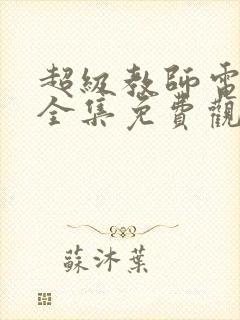 超級教師電
全集免費觀
蘇沐葉